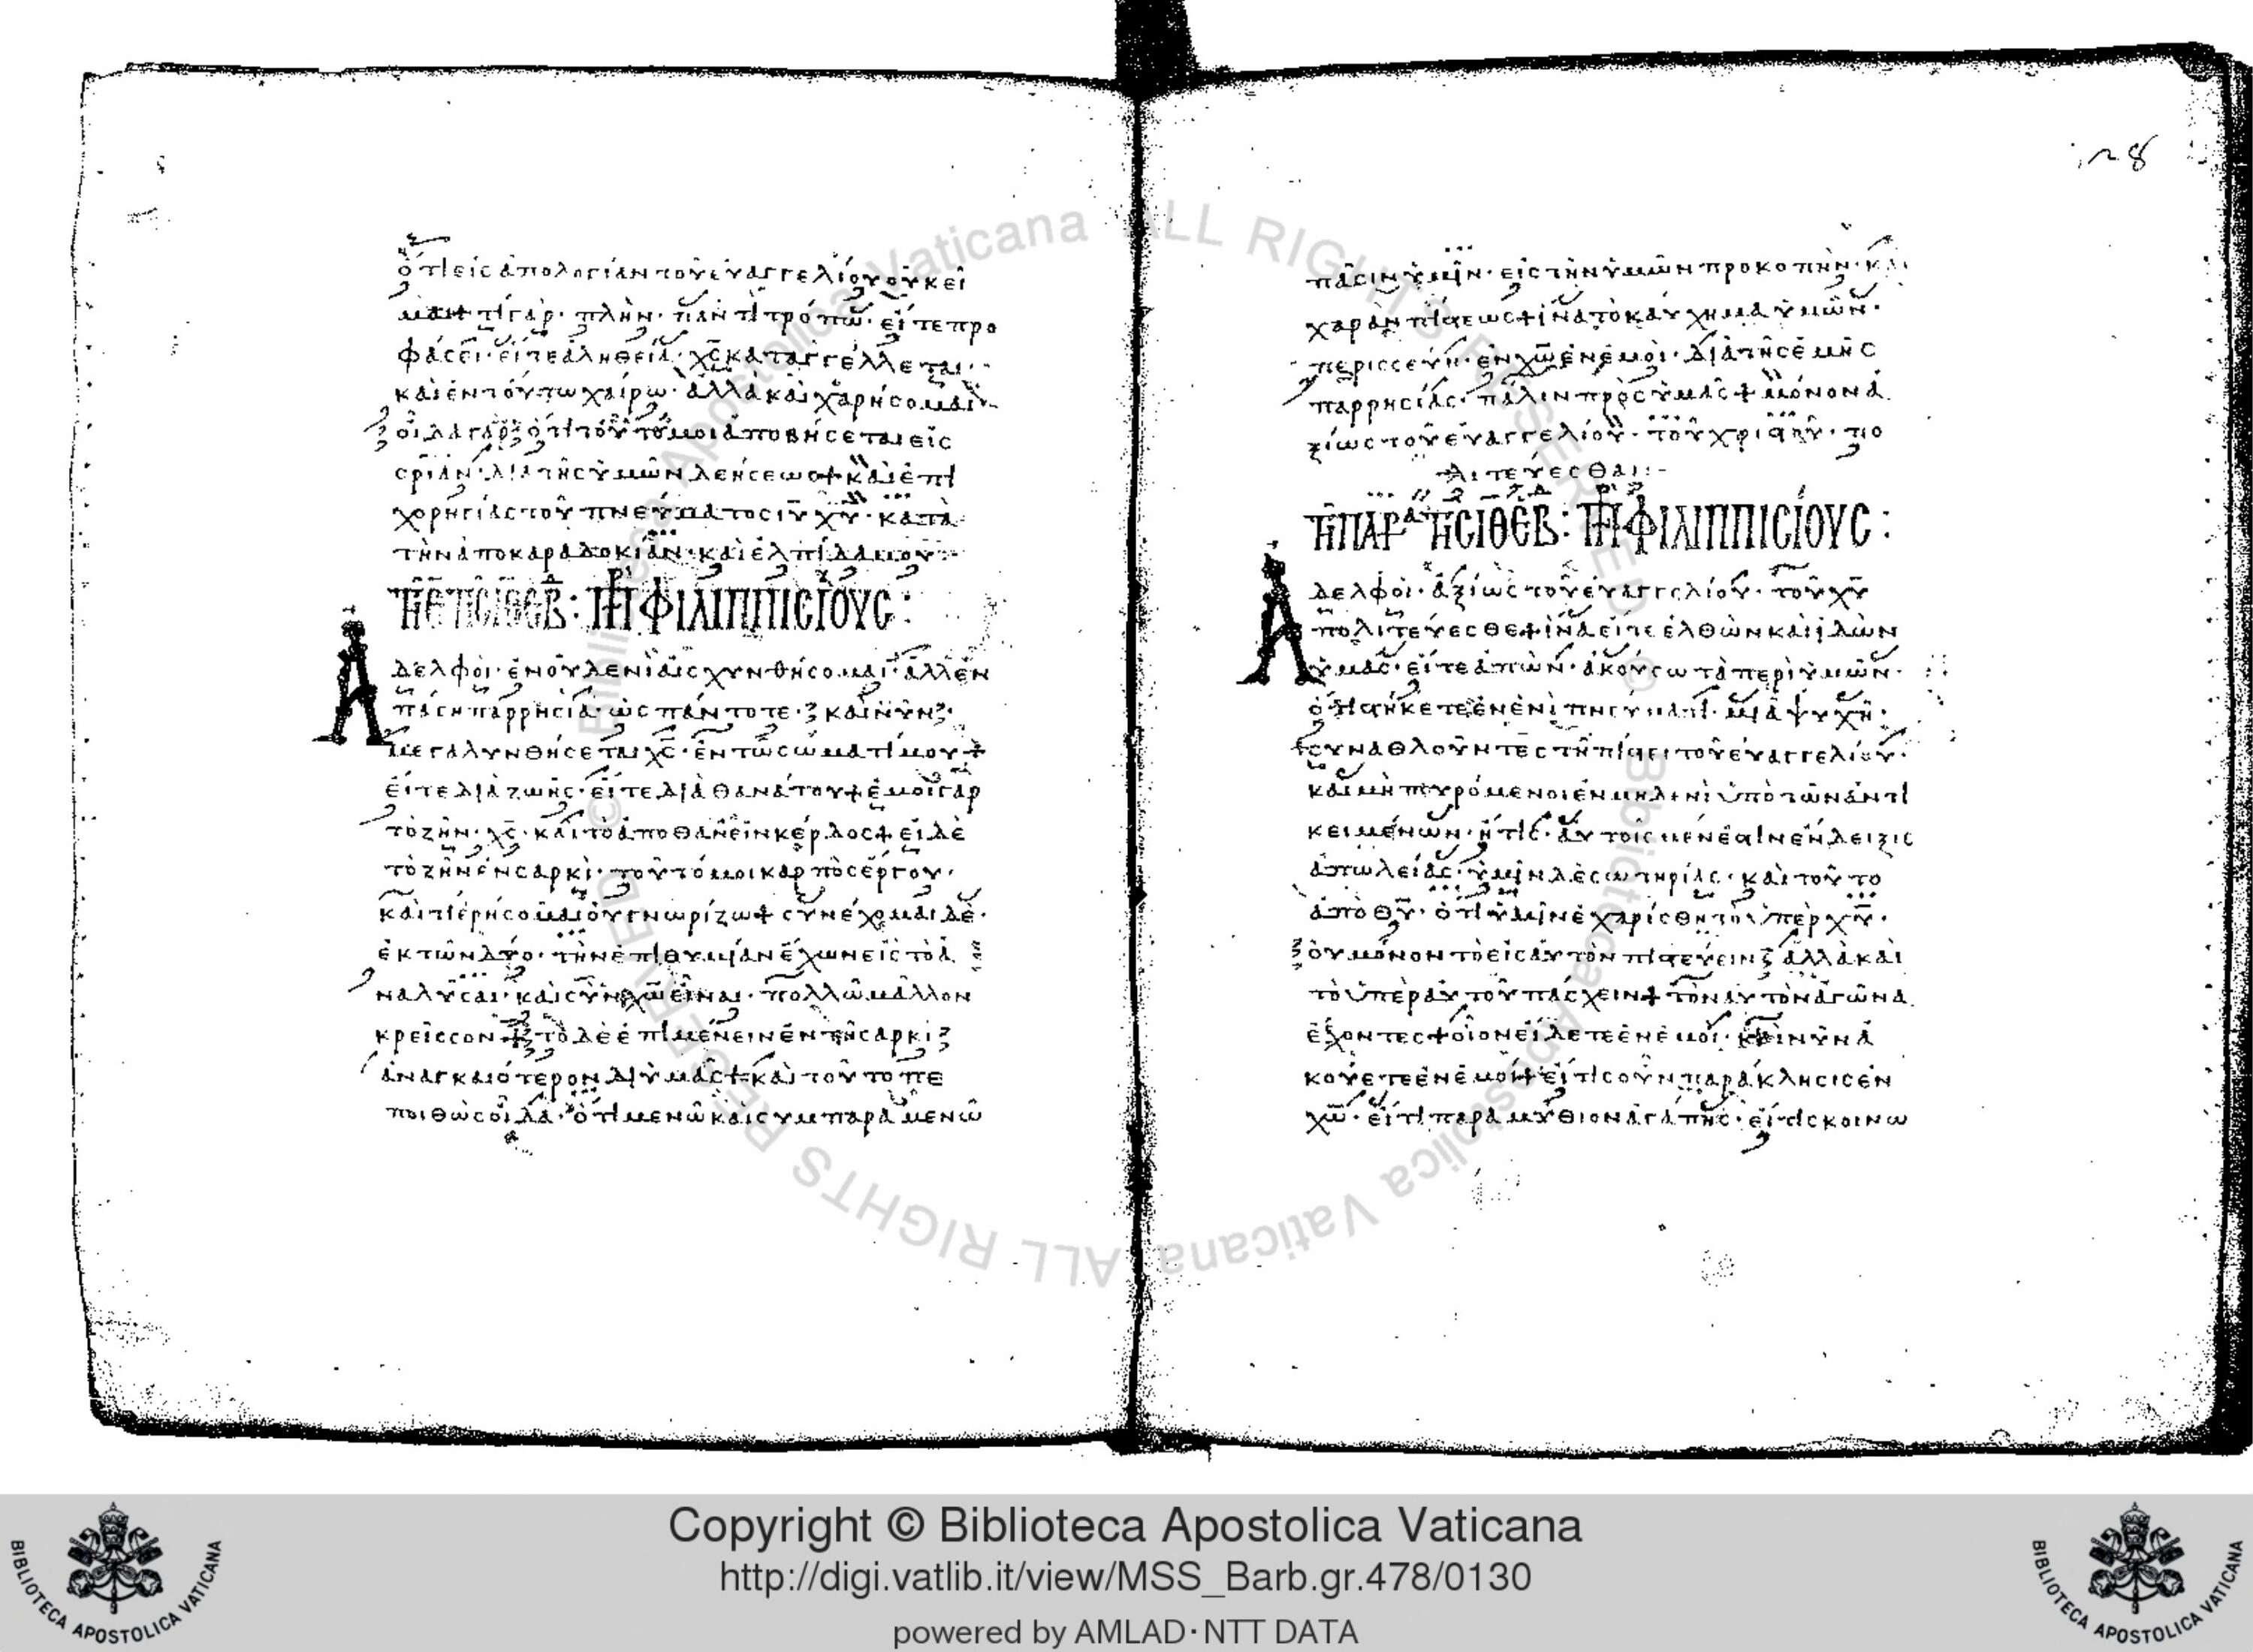 ὅτι εἰς ἀπολογίαν τοῦ εὐαγγελίου κεῖ
μαι τί γάρ· πλὴν· παντὶ τρόπω· εἴτε προ
φάσει· εἴτε ἀληθεία· χς καταγγέλλεται·
καὶ ἐν τούτω χαίρω· ἀλλὰ καὶ χαρήσομαι
οἶδα γὰρ ὅτι τοῦτό μοι ἀποβήσεται εἰς
σρίαν· διὰ τῆς ὑμῶν δεήσεως + καὶ ἐπι
χορηγίας τοῦ πνεύματος ιυ χυ· κατὰ
τὴν ἀποκαραδοκίαν· καὶ ἐλπίδα μου
ΦΙΛΙΠΠΙΣΙΟΥΣ:
Αδελφοὶ· ἐν οὐδενὶ αἰσχυνθήσομαι· ἀλλ' ἐν
πάση παρρησία· ὡς πάντοτε· καὶ νῦν·
μεγαλυνθήσεται χς· ἐν τῶ σώματί μου +
εἴτε διὰ ζωῆς· εἴτε διὰ θανάτου + ἐμοὶ γὰρ
τὸ ζῆν· χς· καὶ τὸ ἀποθανεῖν κέρδος + εἰ δὲ
τὸ ζῆν ἐν σαρκὶ· τοῦτό μοι καρπὸς ἔργου·
καὶ τί ἐρήσομαι οὐ γνωρίζω + συνέχομαι δὲ·
ἐκ τῶν δύο· τὴν ἐπιθυμίαν ἔχων εἰς τὸ ἀ
ναλῦσαι· καὶ σὺν χω εἶναι· πολλῶ μᾶλλον
κρεῖσσον + τὸ δὲ ἐπιμένειν ἐν τῆ σαρκὶ
ἀναγκαιότερον δι' ὑμᾶς + καὶ τοῦτο πε
ποιθὼς οἶδα· ὅτι μενῶ καὶ συμπαραμενῶ
128
πᾶσιν ὑμῖν· εἰς τὴν ὑμῶν προκοπὴν· καὶ
χαρὰν πίστεως + ἵνα τὸ καύχημα ὑμῶν·
περισσεύη· ἐν χω ἐν ἐμοὶ· διὰ τῆς ἐμῆς
παρρησίας· πάλιν πρὸς ὑμᾶς + μόνον ἀ
ξίως τοῦ εὐαγγελίου· τοῦ χριστοῦ· πο
λιτεύεσθαι:-
ΦΙΛΙΠΠΙΣΙΟΥΣ:
Αδελφοὶ· ἀξίως τοῦ εὐαγγελίου· τοῦ χυ
πολιτεύεσθε + ἵνα εἴτε ἐλθὼν καὶ ἰδὼν
ὑμᾶς· εἴτε ἀπὼν· ἀκούσω τὰ περὶ ὑμῶν·
ὅτι στήκετε ἐν ἑνὶ πνεύματι· μιᾶ ψυχῆ·
συναθλοῦντες τῆ πίστει τοῦ εὐαγγελίου·
καὶ μὴ πτυρόμενοι ἐν μηδενὶ ὑπὸ τῶν ἀντι
κειμένων· ἥτις· αὐτοῖς μέν ἐστιν ἔνδειξις
ἀπωλείας· ὑμῖν δὲ σωτηρίας· καὶ τοῦτο
ἀπὸ θυ· ὅτι ὑμῖν ἐχαρίσθη τὸ ὑπὲρ χυ·
οὐ μόνον τὸ εἰς αὐτὸν πιστεύειν ἀλλὰ καὶ
τὸ ὑπὲρ αὐτοῦ πάσχειν + τὸν αὐτὸν ἀγῶνα
ἔχοντες + οἷον εἴδετε ἐν ἐμοὶ· καὶ νῦν ἀ
κούετε ἐν ἐμοί + εἴ τις οὖν παράκλησις ἐν
χω· εἴ τι παραμύθιον ἀγάπης· εἴ τις κοινω
© Biblioteca Apostolica Vaticana ALL RIGHTS RESERVED © Biblioteca Apostolica Vaticana ALL RIGHTS RESERVED
Copyright © Biblioteca Apostolica Vaticana
http://digi.vatlib.it/view/MSS_Barb.gr.478/0130
powered by AMLAD·NTT DATA
BIBLIOTECA APOSTOLICA VATICANA
BIBLIOTECA APOSTOLICA VATICANA